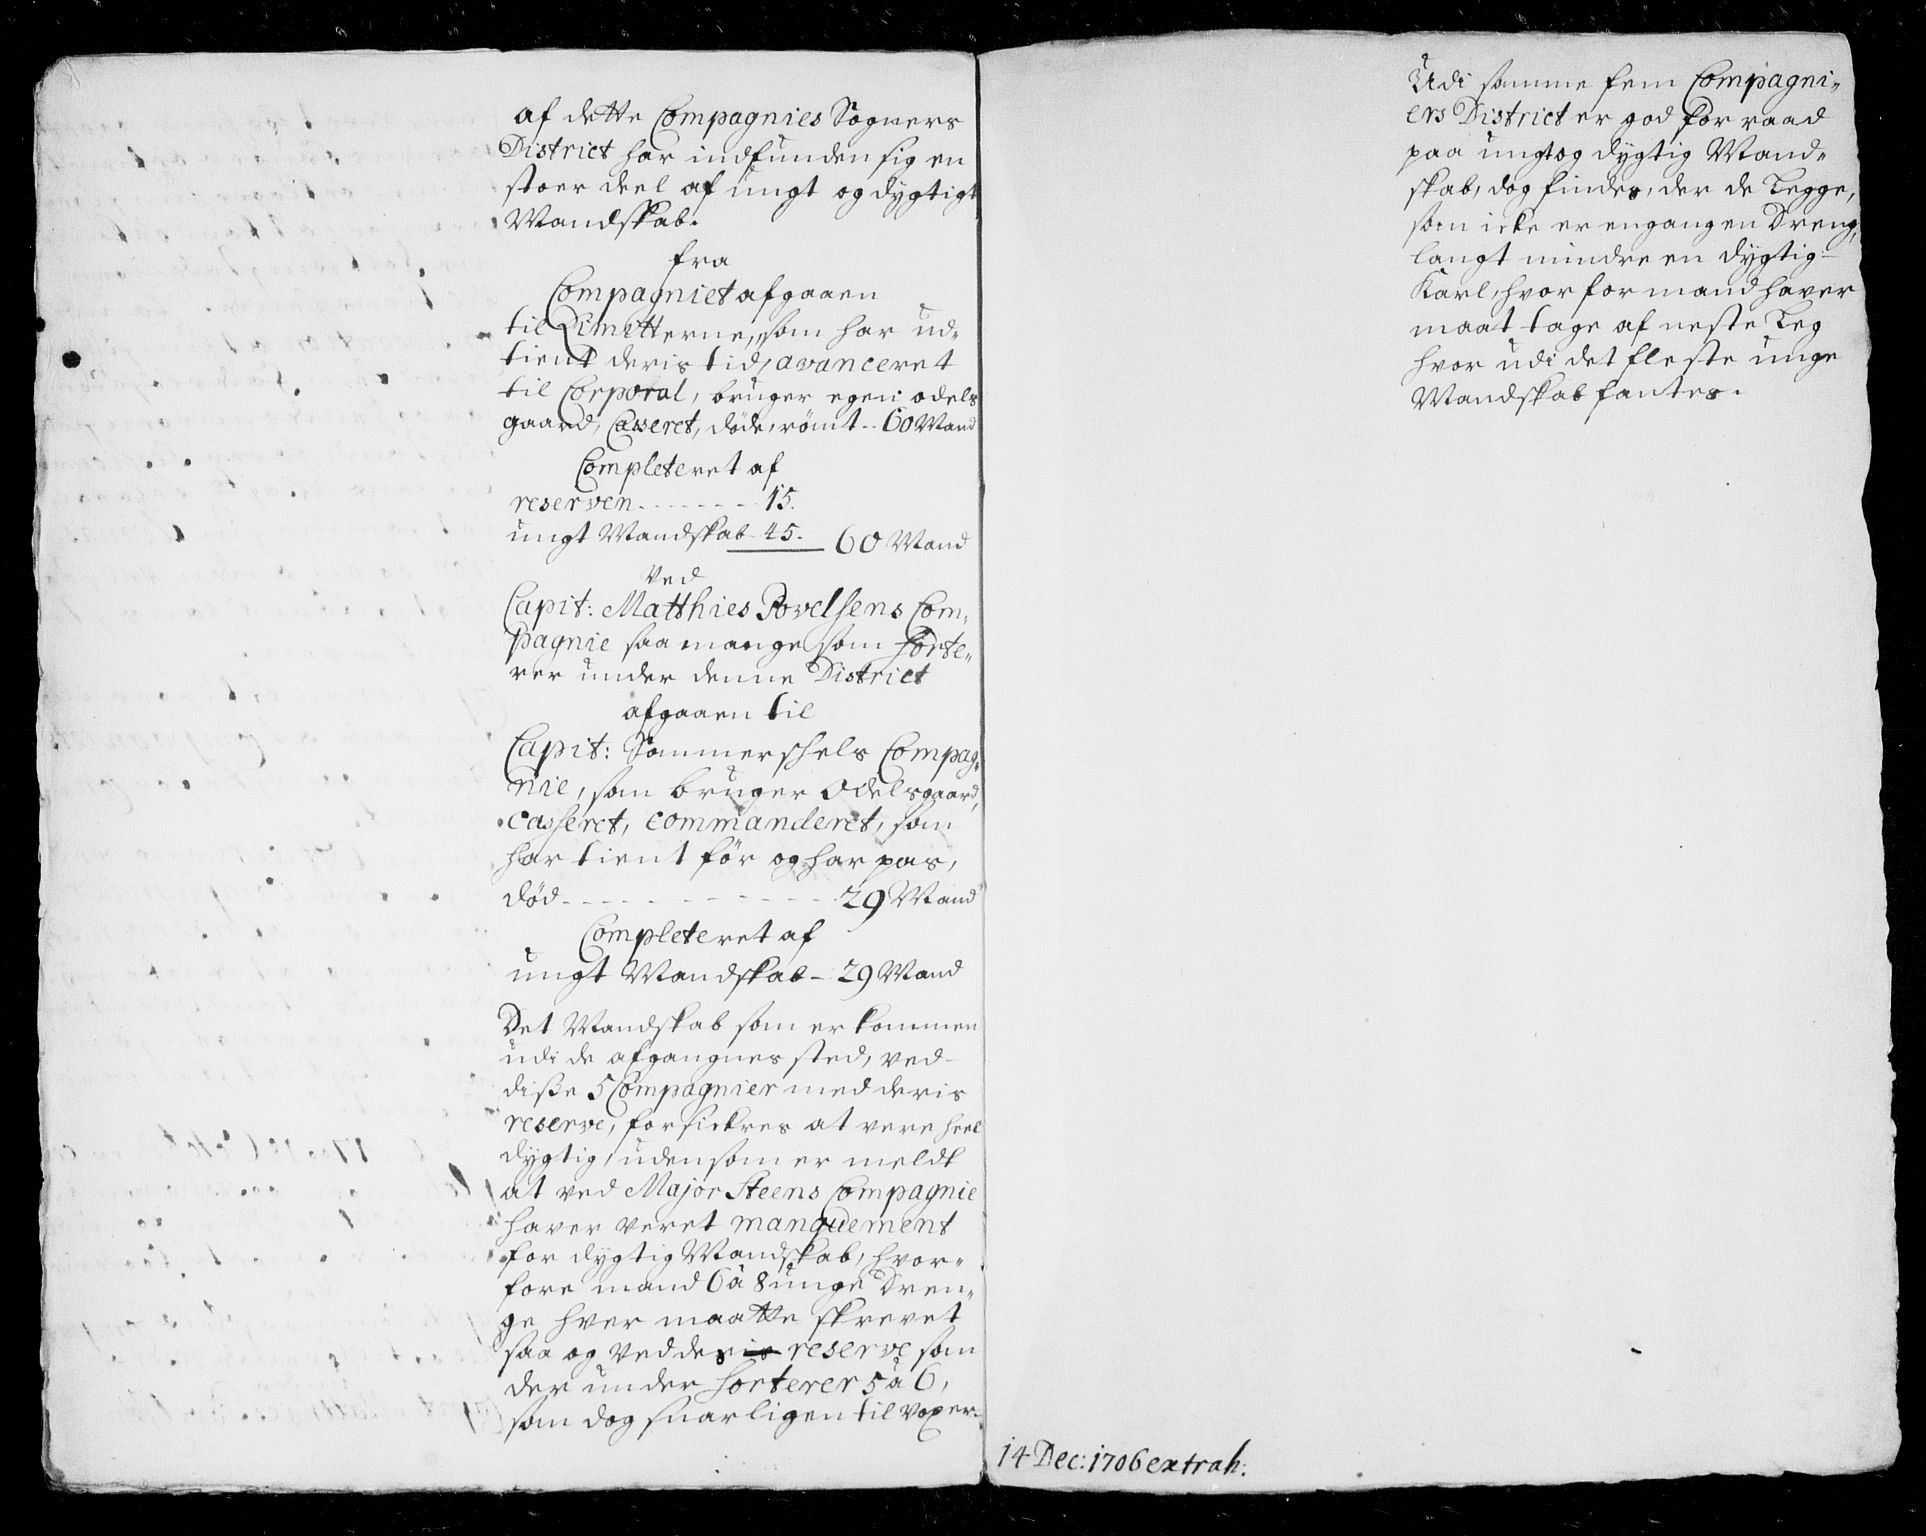 af dette Compagnies Sogners
District har indfunden sig en
stoer deel af ungt og dygtigt
Mandskab.
fra
Compagniet afgaaen
til Limitterne, som har ud-
tient deris tid, avanceret
til Corporal, bruger egen odels
gaard, Casseret, döde, römt -- 60 Mand
Completeret af
reserven - - - - - - - 15.
ungt Mandskab - 45. 60 Mand
Ved
Capit: Matthies Povelsens Com-
pagnie saa mange som sorte-
rer under denne District
afgaaen til
Capit: Sommerschels Compag-
nie, som bruger Odelsgaard,
casseret, commanderet, som
har tient för og har pas,
död - - - - - - - - - - 29 Mand
Completeret af
ungt Mandskab - 29 Mand
Det Mandskab som er kommen
udi de afgangnes sted, ved
diße 5 Compagnier med deris
reserve, forsickres at vere heel
dygtig, uden som er meldt
at ved Major Steens Compagnie
haver veret manquement
for dygtig Mandskab, hvor-
fore mand 6 à 8 unge Dren-
ge hver maatte skrevet
saa og ved deris reserve som
der under sorterer 5 à 6,
som dog snarligen til voxer.
Udi samme fem Compagni-
ers District er god for raad
paa ungt og dygtig Mand-
skab, dog findes, der de Legge,
som icke er engang en Dreng,
langt mindre en dygtig
Karl, hvor for mand haver
maat tage af neste Leg
hvor udi det fleste unge
Mandskab fantes.
14 Dec: 1706 extrah: